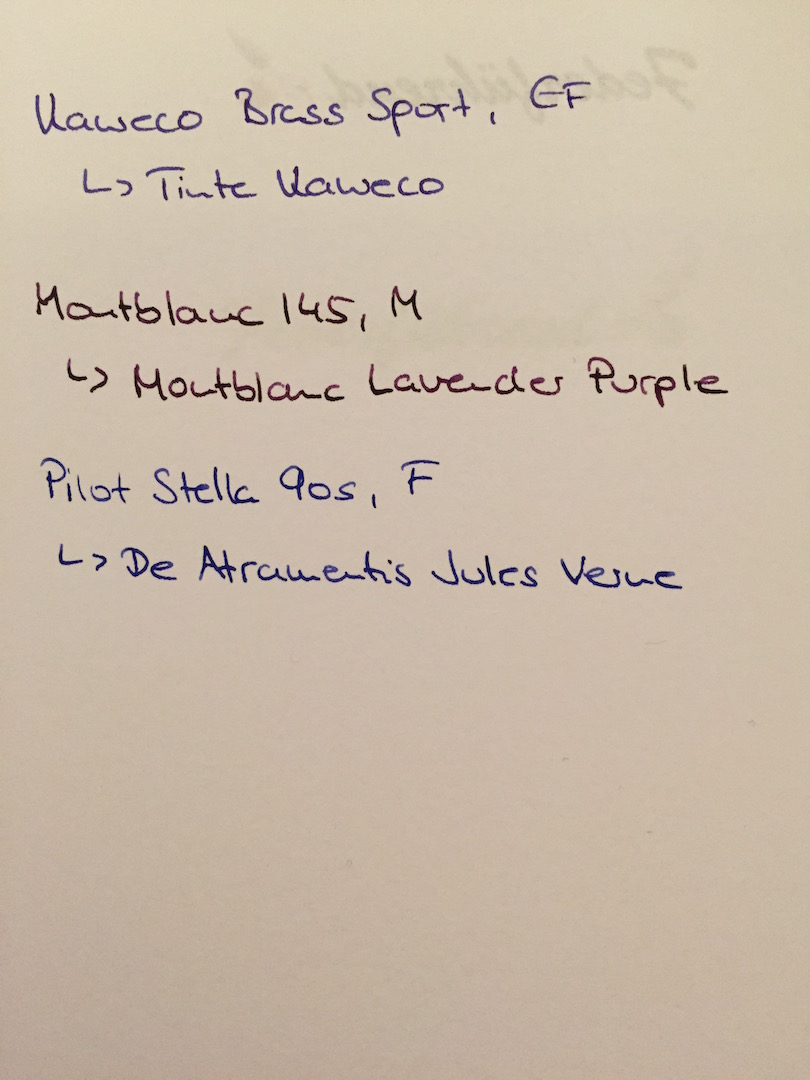 Kaweco Brass Sport, EF
↳ Tinte Kaweco
Montblanc 145, M
↳ Montblanc Lavender Purple
Pilot Stella 90s, F
↳ De Atramentis Jules Verne